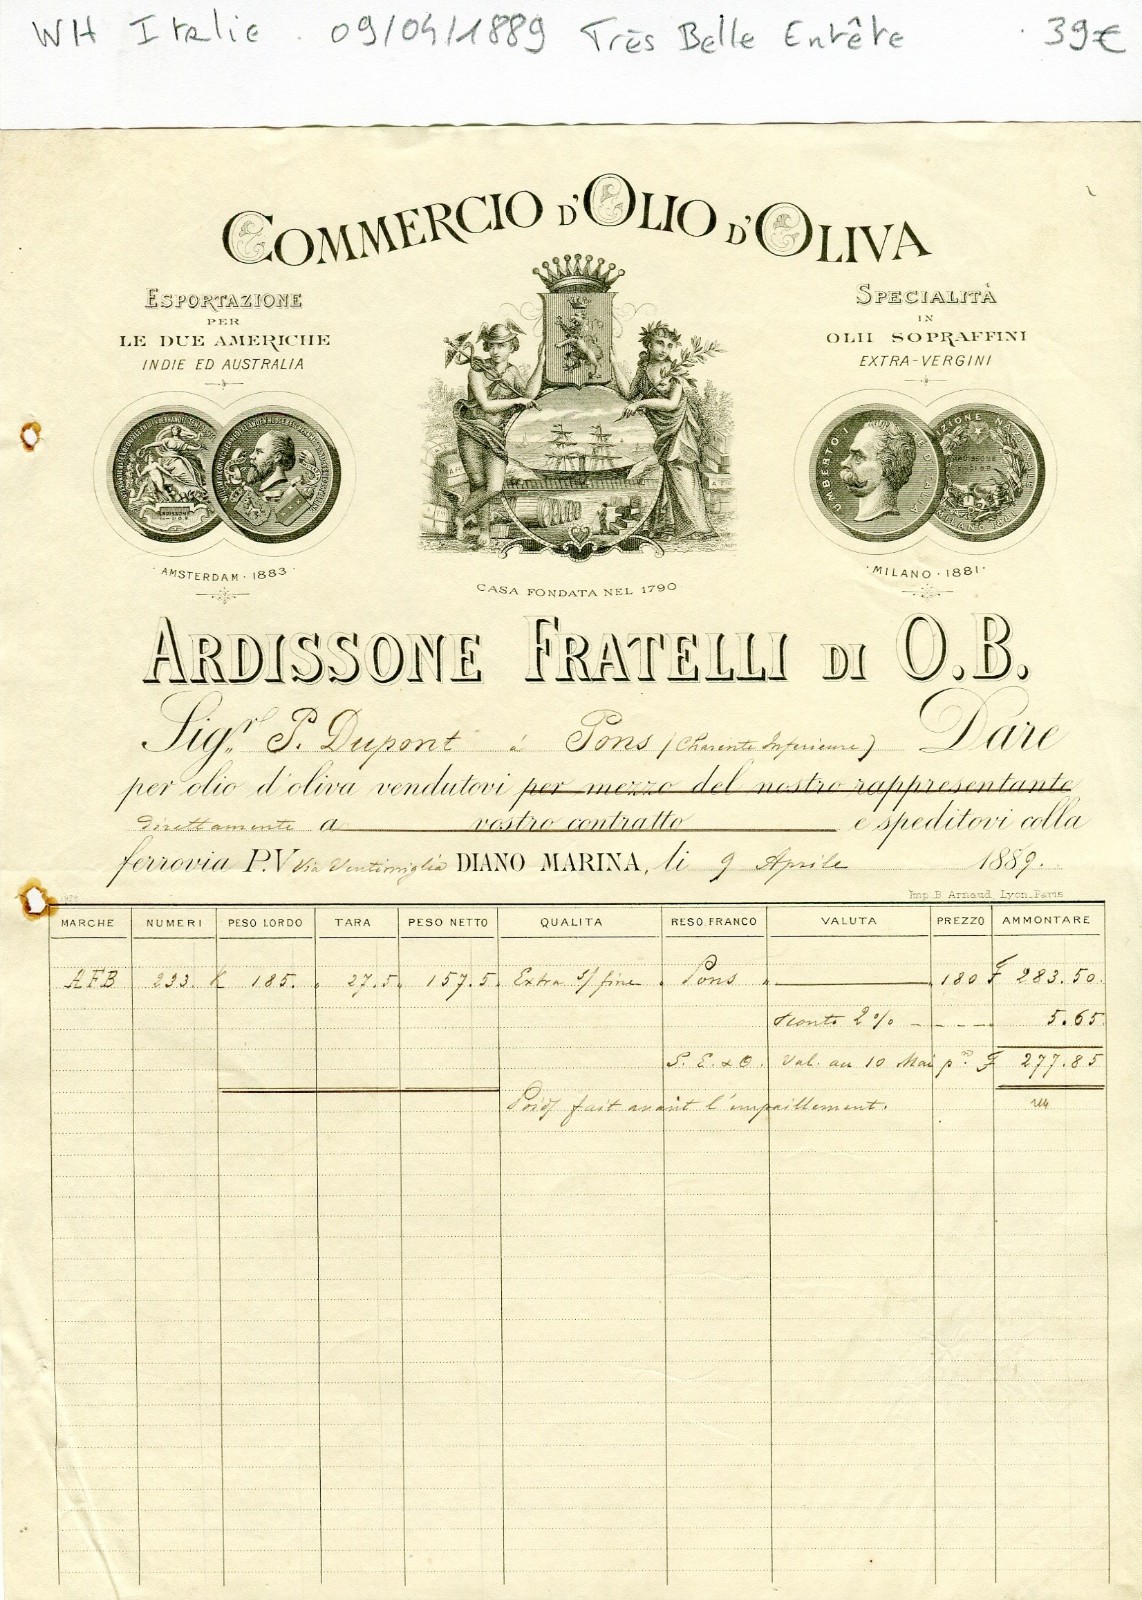 WH Italie . 09/04/1889 Très Belle Entête . 39€
COMMERCIO D'OLIO D'OLIVA
ESPORTAZIONE
PER
LE DUE AMERICHE
INDIE ED AUSTRALIA
SPECIALITÀ
IN
OLII SOPRAFFINI
EXTRA-VERGINI
UMBERTO I
AMSTERDAM · 1883 ·
· MILANO · 1881 ·
CASA FONDATA NEL 1790
ARDISSONE FRATELLI DI O.B.
Sigr. P. Dupont á Pons (Charente Inferieure) Dare
per olio d'oliva vendutovi per mezzo del nostro rappresentante
direttamente a vostro contratto e speditovi colla
ferrovia P.V. via Ventimiglia DIANO MARINA, li 9 Aprile 1889.
Imp. B. Arnaud, Lyon_Paris
MARCHE NUMERI PESO LORDO TARA PESO NETTO QUALITA RESO FRANCO VALUTA PREZZO AMMONTARE
AFB 223. K 185. 27.5 157.5 Extra s/fine Pons 180 F 283.50.
Sconto 2% - - - - 5.65
S. E. & O. Val. au 10 Mai pº. F 277.85
Poids fait avant l'empaillement.